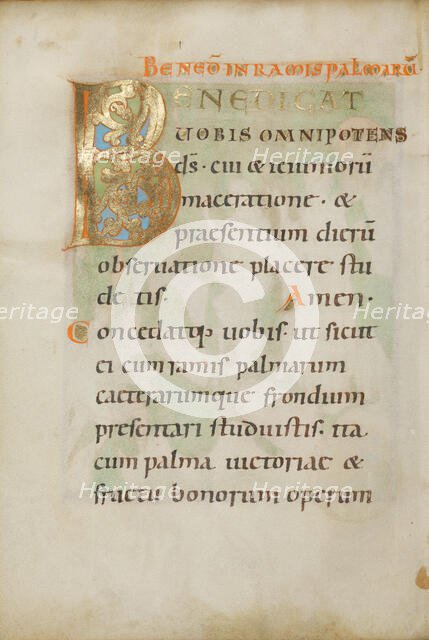 BENED IN RAMIS PALMARŪ
BENEDICAT
VOBIS OMNIPOTENS
d̄s · cui & ieiuniorū
maceratione · &
praesentium dierū
obseruatione placere stu
detis. Amen.
Concedatq; uobis · ut sicut
ei cum ramis palmarum
caeterarumque frondium
presentari studuistis · ita
cum palma uictoriae &
fructu bonorum operum
Heritage
Heritage
Heritage
Heritage
Heritage
Heritage
Heritage
Heritage
Heritage